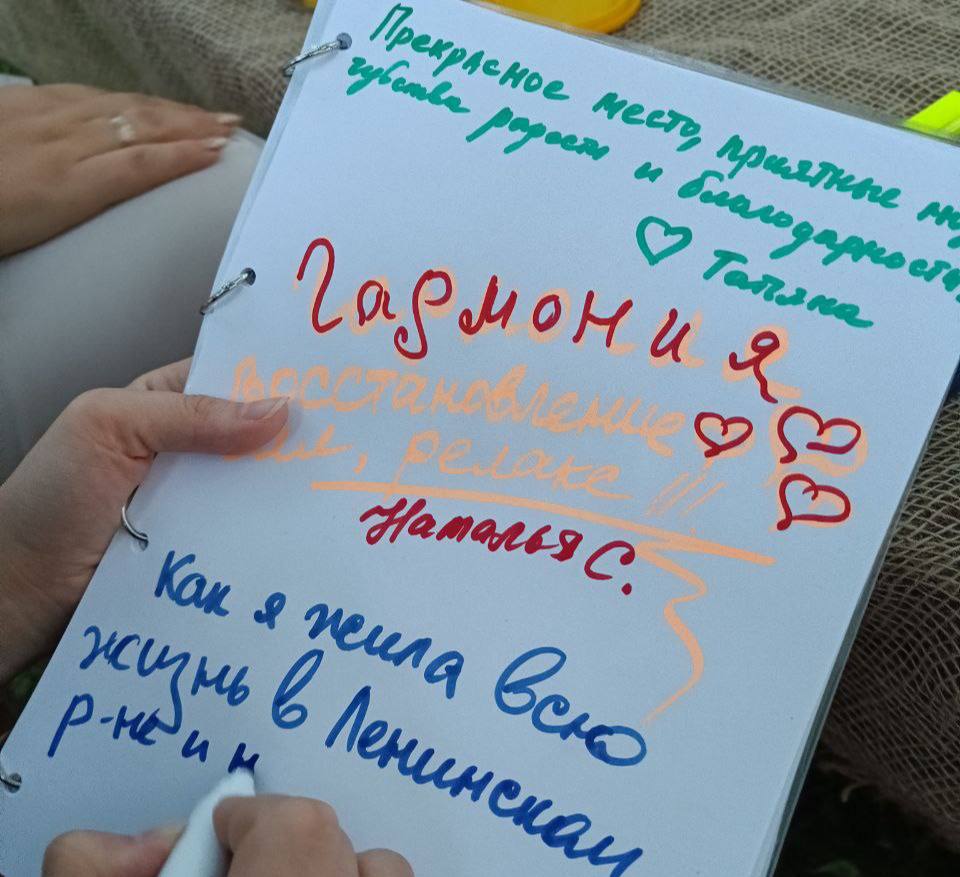 Прекрасное место, приятные
чувства радости и благодарности
Татяна
Гармония
восстановление
, релакс !!!
Наталья С.
Как я жила всю
жизнь в Ленинском
р-не и н